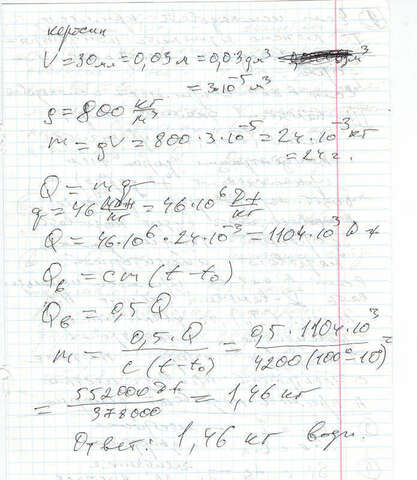 керосин
V = 30 мл = 0,03 л = 0,03 дм³
= 3·10⁻⁵ м³
ρ = 800 кг/м³
m = ρV = 800 · 3 · 10⁻⁵ = 24 · 10⁻³ кг
= 24 г.
Q = mq
q = 46 МДж/кг = 46·10⁶ Дж/кг
Q = 46·10⁶ · 24·10⁻³ = 1104·10³ Дж
Qв = cm (t – t₀)
Qв = 0,5 Q
m = 0,5·Q / c(t – t₀) = 0,5 · 1104·10³ / 4200 (100° – 10°) =
= 552000 Дж / 378000 = 1,46 кг
Ответ: 1,46 кг воды.